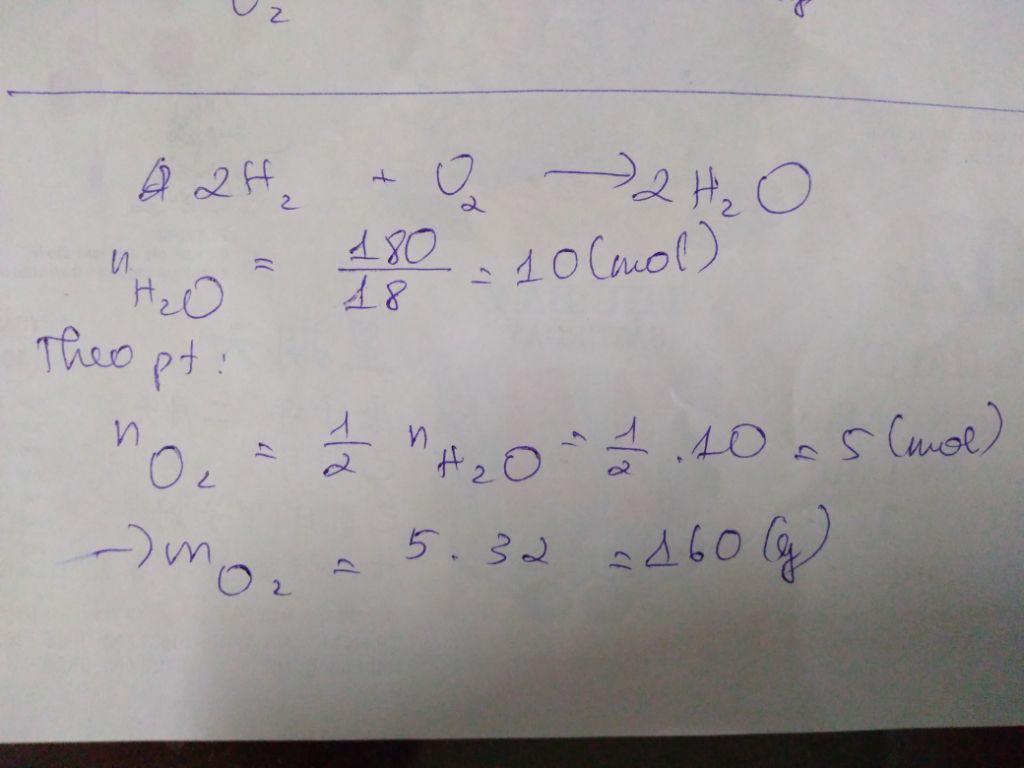 O₂ g
2H₂ + O₂ → 2H₂O
n H₂O = 180/18 = 10 (mol)
Theo pt:
n O₂ = 1/2 n H₂O = 1/2 . 10 = 5 (mol)
→ m O₂ = 5 . 32 = 160 (g)